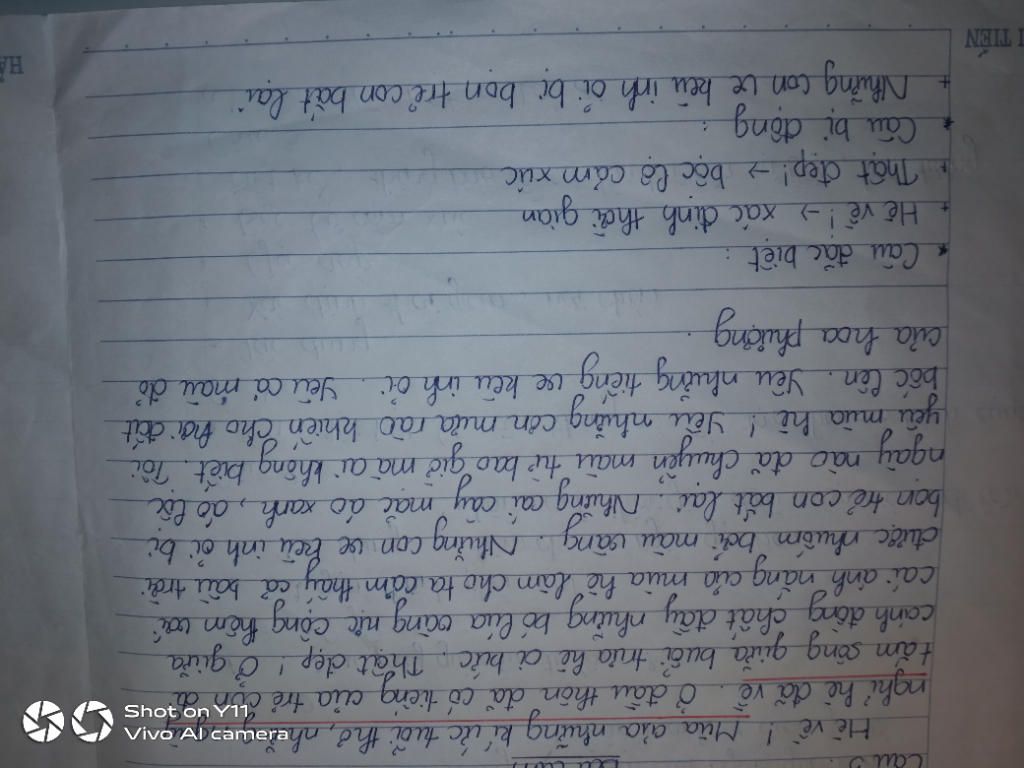 Câu 5:
Hè về! Mùa của những kí ức tuổi thơ, những ngày
nghỉ hè đã về. Ở đầu thôn đã có tiếng của trẻ con đi
tắm sông giữa buổi trưa hè oi bức. Thật đẹp! Ở giữa
cánh đồng chất đầy những bó lúa vàng rực cộng thêm với
cái ánh nắng của mùa hè làm cho ta cảm thấy cả bầu trời
được nhuốm bởi màu vàng. Những con ve kêu inh ỏi bị
bọn trẻ con bắt lại. Những cái cây mặc áo xanh, áo lộc
ngày nào đã chuyển màu từ bao giờ mà ai không biết. Tôi
yêu mùa hè! Yêu những cơn mưa rào khiến cho hơi đất
bốc lên. Yêu những tiếng ve kêu inh ỏi. Yêu cả màu đỏ
của hoa phượng.
* Câu đặc biệt:
+ Hè về! → xác định thời gian
+ Thật đẹp! → bộc lộ cảm xúc
* Câu bị động:
+ Những con ve kêu inh ỏi bị bọn trẻ con bắt lại
TIẾN
HẢ
Shot on Y11
Vivo AI camera